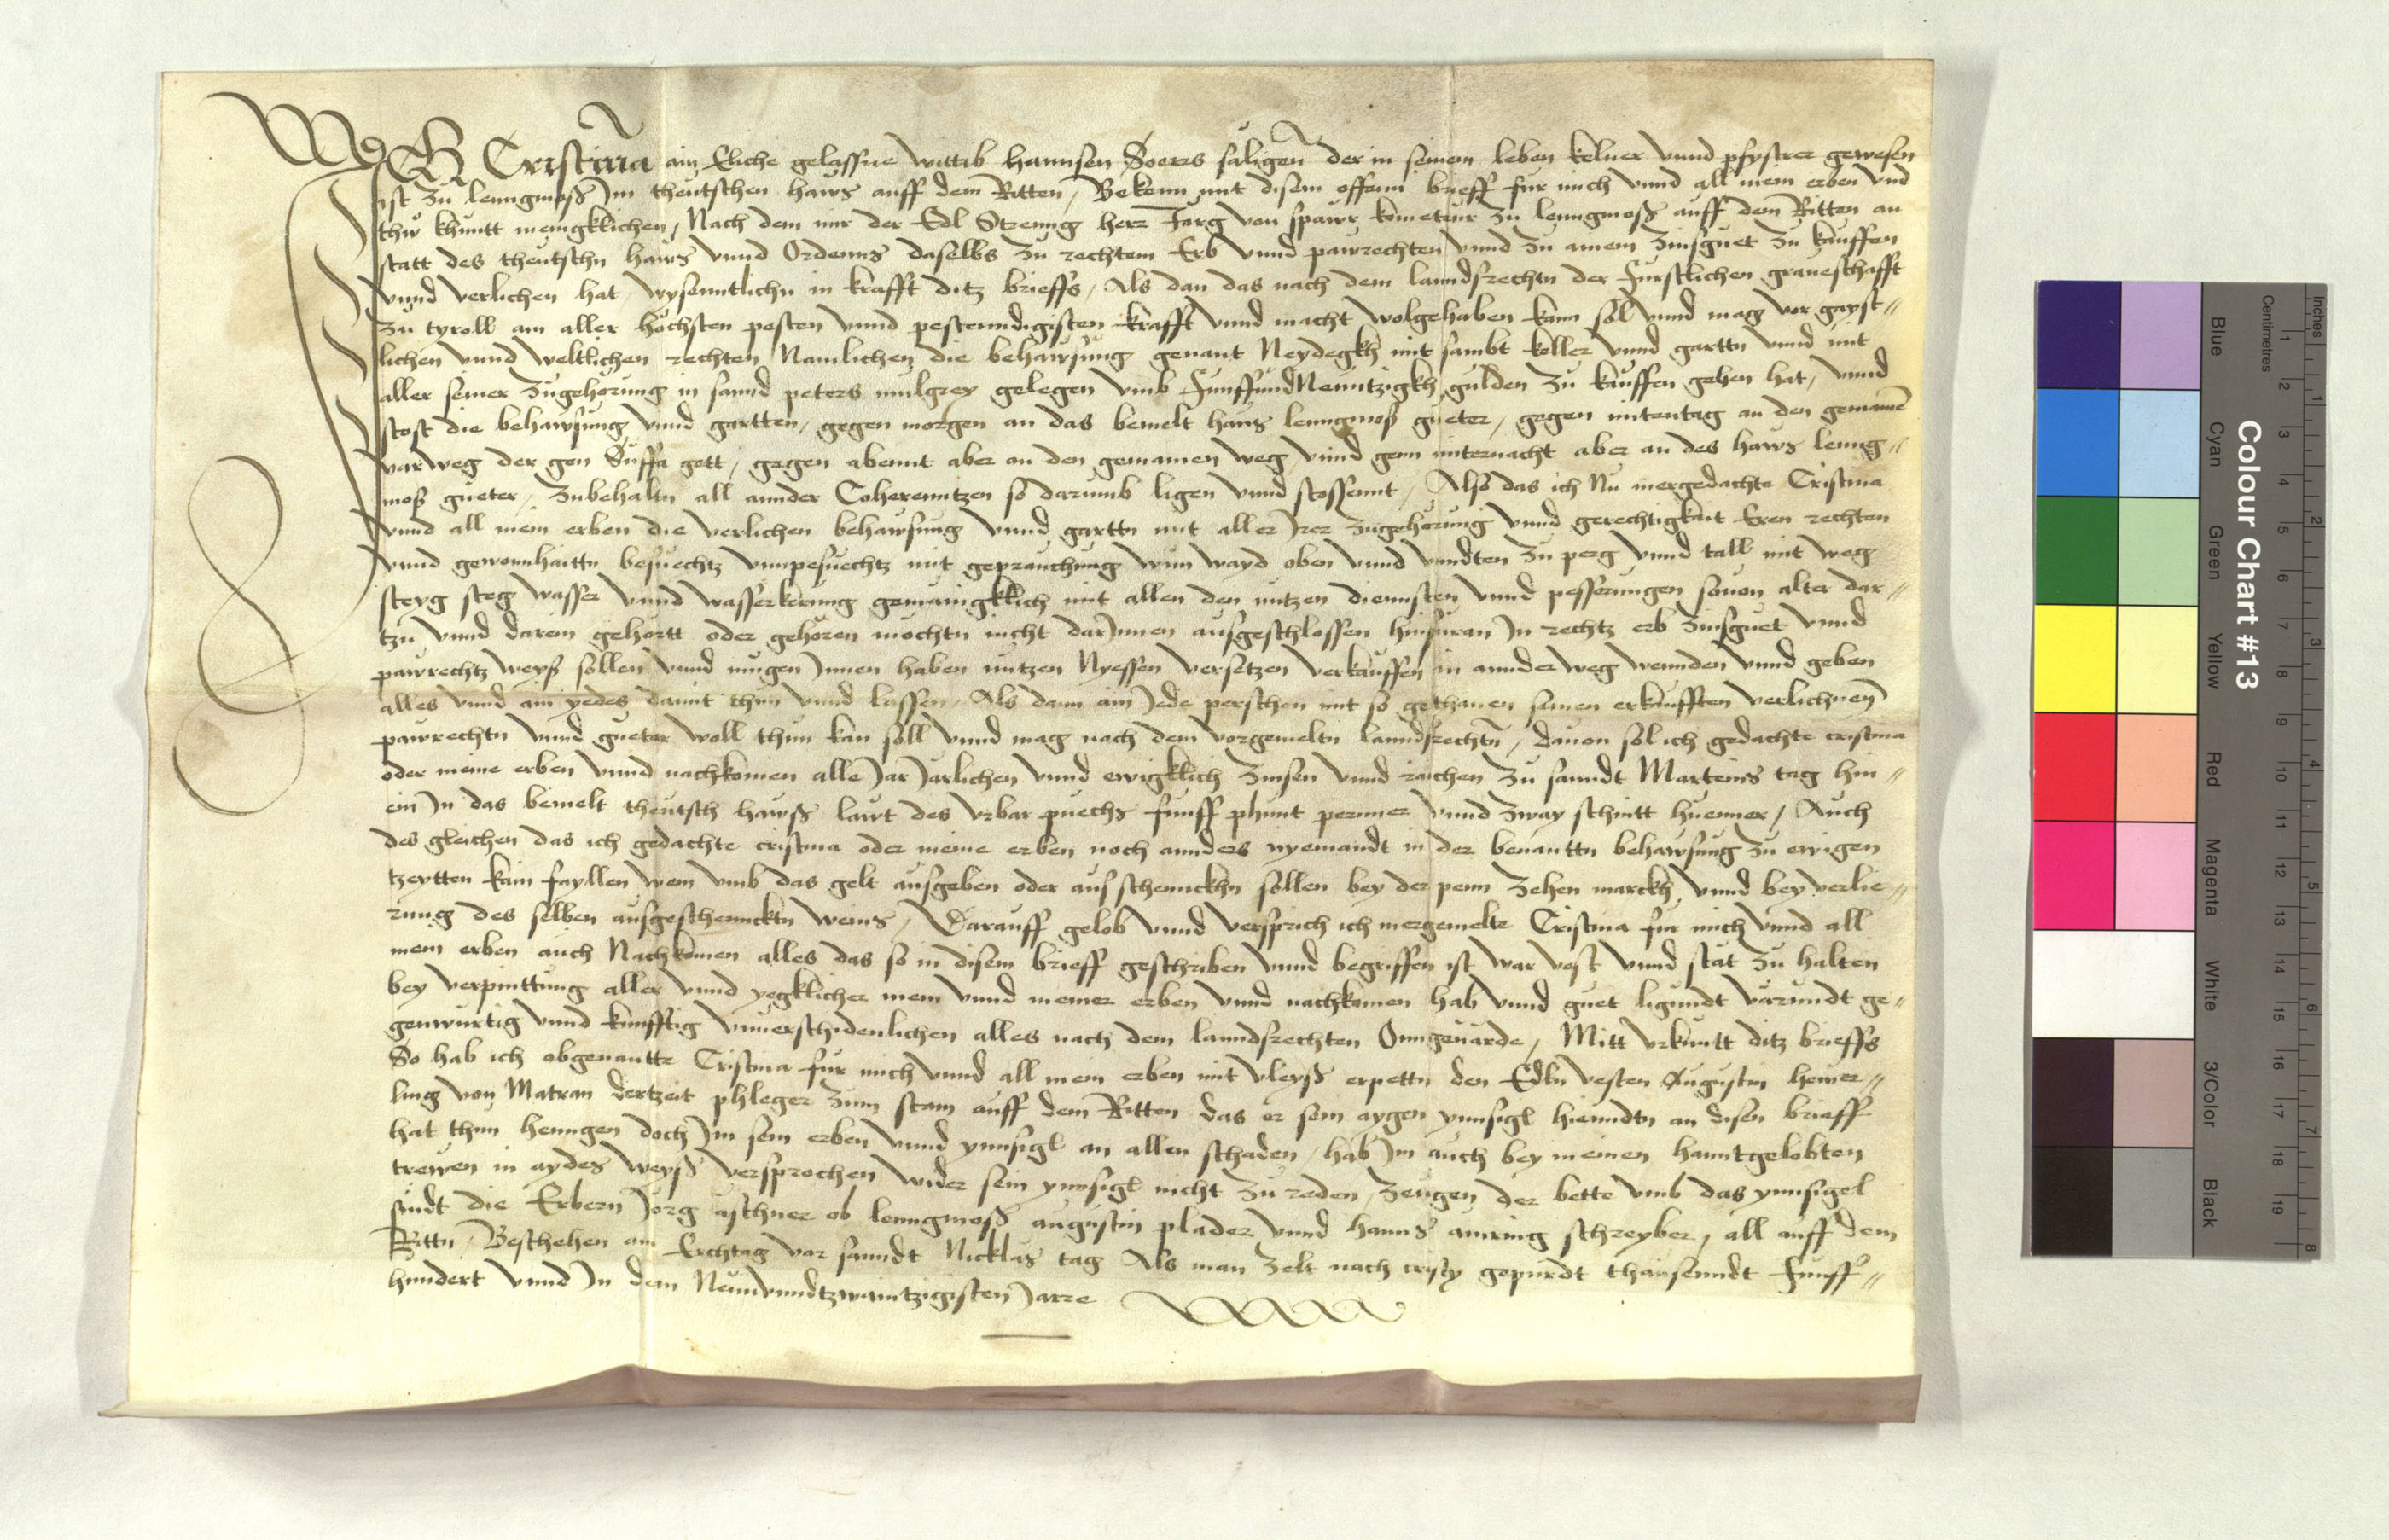 Ich Cristina ain Eliche gelassne wittib hannsen Soerrs säligen der in seinem leben kelner vnnd pfystrer gewesen
ist zu lenngmoß Im theutschen haws auff dem Ritten / Bekenn mit disem offenn brieff fur mich vnnd all mein erben vnd
thuw khuntt menigklichen / Nach dem mir der Edl Strenng herr Jörg von spawr kometeur zu lenngmoß auff dem Ritten an
statt des theutschn haws vnnd Ordenns daselbs zu rechtem Erb vnnd pawrechten vnnd zu ainem zinsguet zu kauffen
vnnd verlichen hat / wyssenntlichn in krafft ditz brieffs / Als dan das nach dem lanndsrechtn der furstlichen graueschafft
zu tyroll am aller höchsten pesten vnnd pestenndigisten krafft vnnd macht wolgehaben kann sol vnnd mag vor gayst //
lichen vnnd weltlichen rechten Namlichen die behawsung genant Neydegkh mit sambt keller vnnd garttn vnnd mit
aller seiner zugehörung in sannd peters mulgrey gelegen vmb funffundNeuntzigkh gulden zu kauffen geben hat / vnnd
stost die behawsung vnnd gartten / gegen morgen an das bemelt haus lenngmoß gueter / gegen mitentag an den gemainen
varweg der gen Suffa gett / gegen abennt aber an den gemainen weg / vnnd genn miternacht aber an des haws lenng //
moß gueter / zubehaltn all annder Coherenntzen so darumb ligen vnnd stossennt / Also das ich Nu mergedachte Cristina
vnnd all mein erben die verlichen behawsung vnnd garttn mit aller Irer zugehörung vnnd gerechtigkait Eren rechten
vnnd gewonnhaittn besuechtz vnnpesuechtz mit geprauchung wun wayd oben vnnd vnndten zu perg vnnd tall mit weg
steyg steg wasser vnnd wasserkerung gemainigklich mit allen den nutzen diennsten vnnd pesserungen souon alter dar //
tzu vnnd darein gehörtt oder gehören möchtn nicht darInnen ausgeschlossen hinfuran In rechtz erb zinsguet vnnd
pawrechtz weyß sollen vnnd mugen Innen haben nutzen Nyessen versetzen verkauffen in annder weg wennden vnnd geben
alles vnnd ain yedes damit thun vnnd lassen / Als dann ain Jede perschon mit so gethanen seinen erkaufften verlichnen
pawrechtn vnnd gueter woll thun kan soll vnnd mag nach dem vorgemeltn lanndsrechtn / dauon sol ich gedachte cristina
oder meine erben vnnd nachkomen alle Jar Järlichen vnnd ewigklich zinsen vnnd raichen zu sanndt Marteins tag hin //
ein In das bemelt theutsch hawß lawt des vrbar puechs funff phunt perrner vnnd zway schnitt huenner / Auch
des gleichen das ich gedachte cristina oder meine erben noch annders nyemandt in der benanttn behawsung zu ewigen
tzeytten kain fayllen wein vmb das gelt ausgeben oder aus schennckhn sollen bey der penn zehen marckh vnnd bey verlie //
rung des selben ausgeschenncktn weins / Darauff gelob vnnd versprich ich mergemelte Cristina fur mich vnnd all
mein erben auch Nachkomen alles das so in disem brieff geschriben vnnd begriffen ist war vest vnnd stät zu halten
bey verpinttung aller vnnd yegklicher mein vnnd meiner erben vnnd nachkomen hab vnnd guet ligundt varundt ge //
genwurtig vnnd kunfftig vnuerschidenlichen alles nach dem lanndsrechten Onngeuärde / Mitt vrkuntt ditz brieffs
So hab ich obgenantte Cristina fur mich vnnd all mein erben mit vleyß erpettn den Edln vesten Augustin heuner //
ling von Matran dertzeit phleger zum stain auff dem Ritten das er sein aygen ynnsigl hienndtn an disen brieff
hat thun henngen doch Im sein erben vnnd ynnsigl an allen schaden / hab Im auch bey meinen hanntgelobten
trewen in aydes weyß versprochen wider sein ynnsigl nicht zu reden / zeugen der bette vmb das ynnsigel
sindt die Erbern Jörg aschner ob lenngmoß augustin plader vnnd hanns amring schreyber / all auff dem
Rittn / Beschehen am Erchtag vor sanndt Nicklas tag Als man zelt nach cristy gepurdt thausenndt funff //
hundert vnnd In dem Neunvnndtzwaintzigisten Jarre
Colour Chart #13
Blue Cyan Green Yellow Red Magenta White 3/Color Black
Centimetres 1 2 3 4 5 6 7 8 9 10 11 12 13 14 15 16 17 18 19
Inches 1 2 3 4 5 6 7 8